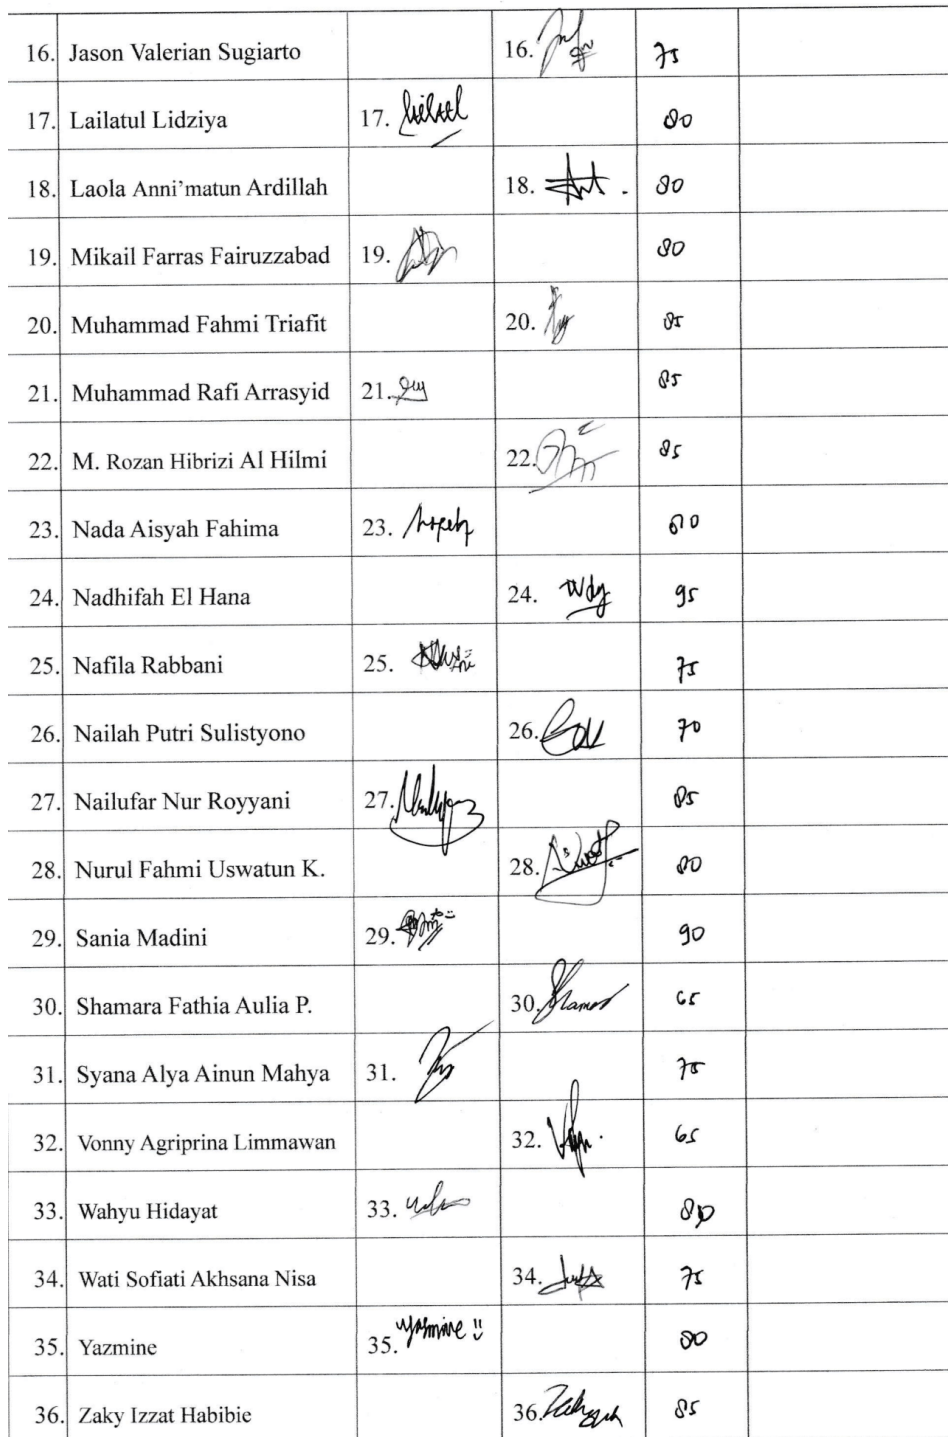 16. Jason Valerian Sugiarto 16. 75
17. Lailatul Lidziya 17. 80
18. Laola Anni'matun Ardillah 18. 80
19. Mikail Farras Fairuzzabad 19. 80
20. Muhammad Fahmi Triafit 20. 85
21. Muhammad Rafi Arrasyid 21. 85
22. M. Rozan Hibrizi Al Hilmi 22. 85
23. Nada Aisyah Fahima 23.
24. Nadhifah El Hana 24. 95
25. Nafila Rabbani 25. 75
26. Nailah Putri Sulistyono 26. 70
27. Nailufar Nur Royyani 27. 85
28. Nurul Fahmi Uswatun K. 28. 80
29. Sania Madini 29. 90
30. Shamara Fathia Aulia P. 30. 65
31. Syana Alya Ainun Mahya 31. 75
32. Vonny Agriprina Limmawan 32. 65
33. Wahyu Hidayat 33. 80
34. Wati Sofiati Akhsana Nisa 34. 75
35. Yazmine 35. Yasmine 80
36. Zaky Izzat Habibie 36. 85